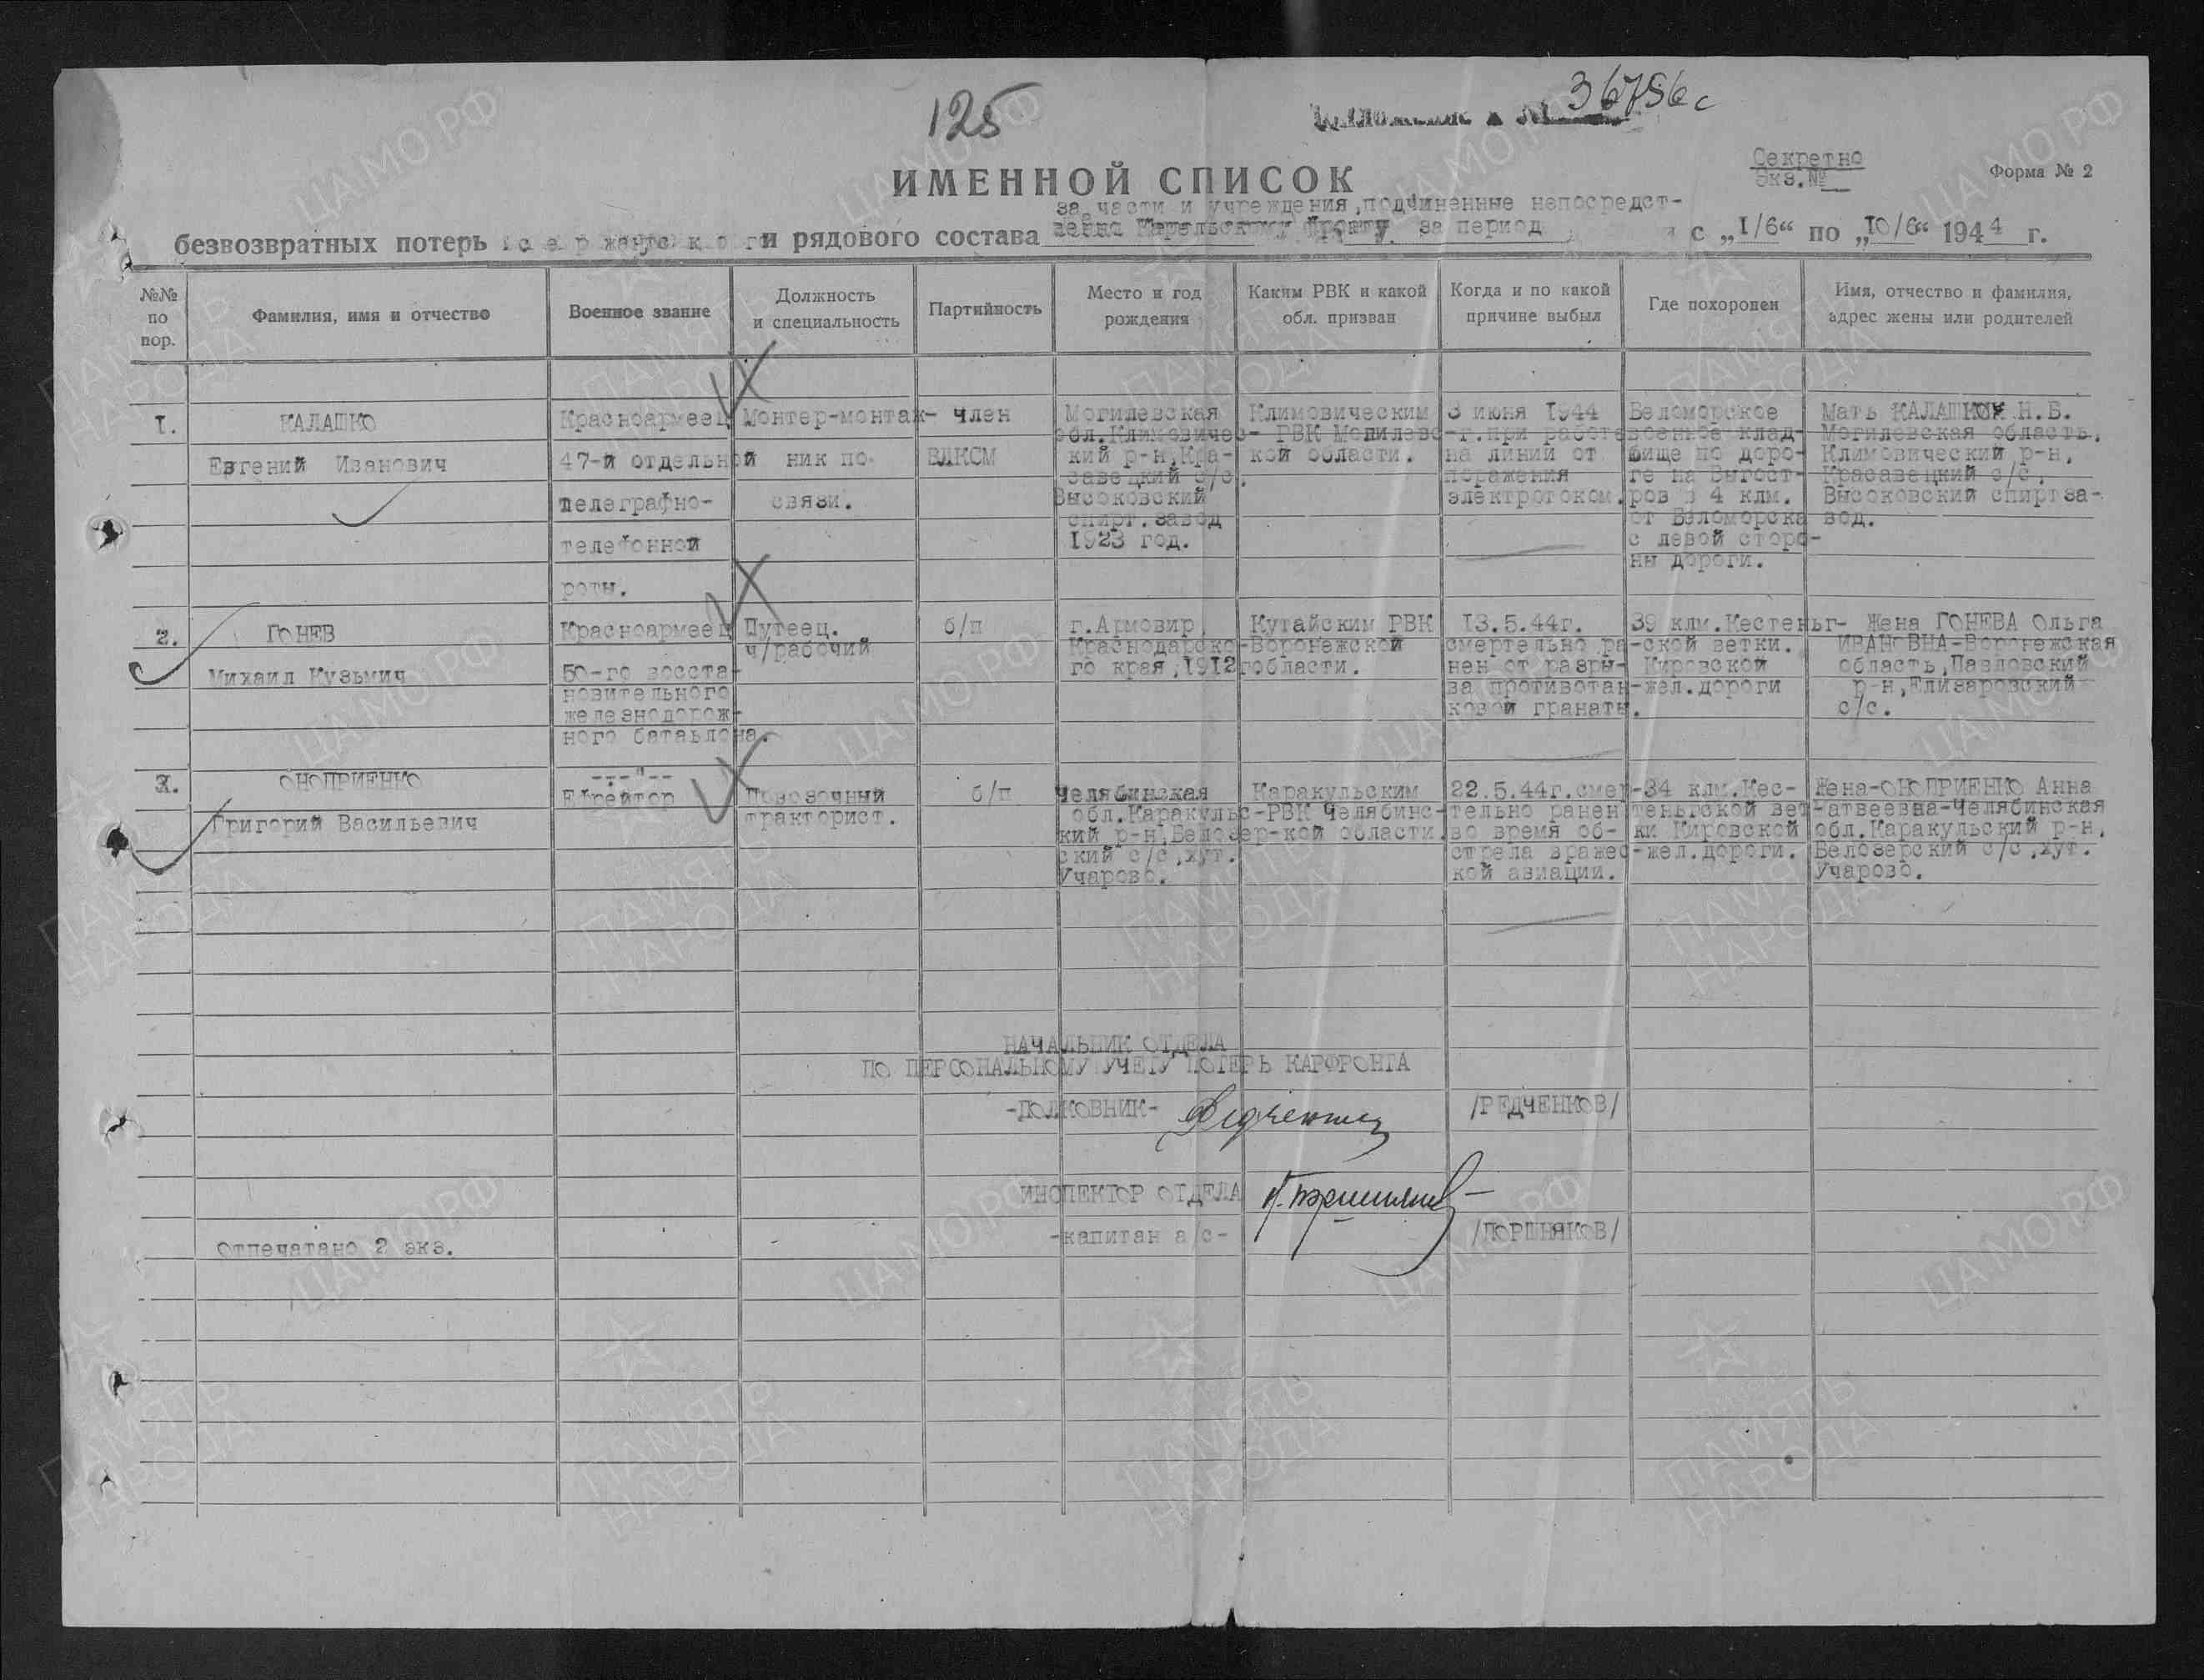 125
36756с
Секретно
Экз.№
Форма № 2
ИМЕННОЙ СПИСОК
за части и учреждения, подчиненные непосредст-
безвозвратных потерь сержантского и рядового состава венно Карельскому фронту за период с „1/6“ по „10/6“ 1944 г.
№№ по пор.
Фамилия, имя и отчество
Военное звание
Должность и специальность
Партийность
Место и год рождения
Каким РВК и какой обл. призван
Когда и по какой причине выбыл
Где похоронен
Имя, отчество и фамилия, адрес жены или родителей
1.
КАЛАШКО
Евгений Иванович
Красноармеец
47-й отдельной
телеграфно-
телефонной
роты.
Монтер-монтаж-
ник по
связи.
член
ВЛКСМ
Могилевская
обл.Климовичес-
кий р-н,Кра-
савецкий с/с,
Высоковский
спирт.завод
1923 год.
Климовическим
РВК Могилевс-
кой области.
3 июня 1944
г.при работе
на линии от
поражения
электротоком.
Беломорское
военное клад-
бище по доро-
ге на Выгост-
ров в 4 клм.
от Беломорска
с левой сторо-
ны дороги.
Мать КАЛАШКО Н.В.
Могилевская область,
Климовический р-н,
Красавецкий с/с,
Высоковский спиртза-
вод.
2.
ГОНЕВ
Михаил Кузьмич
Красноармеец
50-го восста-
новительного
железнодорож-
ного батальона.
Путеец.
ч/рабочий
б/п
г.Армовир,
Краснодарско-
го края,1912г
Кутайским РВК
Воронежской
области.
13.5.44г.
смертельно ра-
нен от разры-
ва противотан-
ковой гранаты.
39 клм.Кестеньг-
ской ветки.
Кировской
жел.дороги
Жена ГОНЕВА Ольга
ИВАНОВНА-Воронежская
область,Павловский
р-н,Елизаровский
с/с.
3.
ОНОПРИЕНКО
Григорий Васильевич
---"--
Ефрейтор
Повозочный
тракторист.
б/п
Челябинская
обл.Каракульс-
кий р-н,Белозер-
ский с/с,хут.
Учарово.
Каракульским
РВК Челябинс-
кой области.
22.5.44г.смер-
тельно ранен
во время об-
стрела вражес-
кой авиации.
34 клм.Кес-
теньгской вет-
ки Кировской
жел.дороги.
Жена-ОНОПРИЕНКО Анна
атвеевна-Челябинская
обл.Каракульский р-н,
Белозерский с/с,хут.
Учарово.
НАЧАЛЬНИК ОТДЕЛА
ПО ПЕРСОНАЛЬНОМУ УЧЕТУ ПОТЕРЬ КАРФРОНТА
-ПОЛКОВНИК- /РЕДЧЕНКОВ/
ИНСПЕКТОР ОТДЕЛА
-капитан а/с- /ПОРШНЯКОВ/
Отпечатано 2 экз.
ЦАМО РФ
ПАМЯТЬ НАРОДА